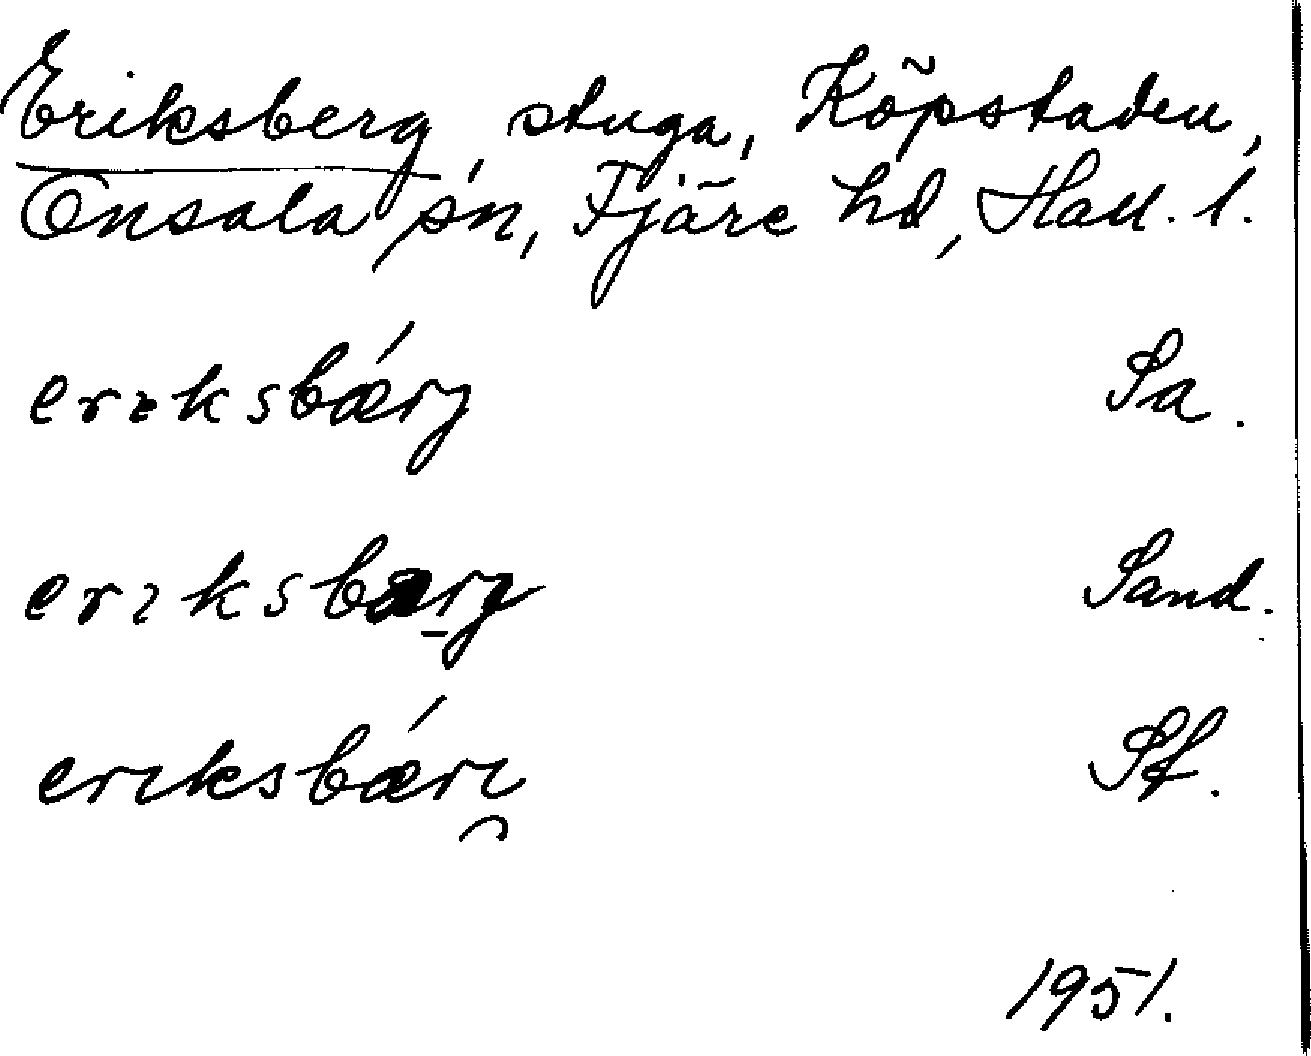 Eriksberg, stuga, Köpstaden,
Onsala sn, Fjäre hd, Hall. l.
erıksbǽrj Sa.
erıksbærj Sand.
erıksbǽri̯ Sf.
1951.